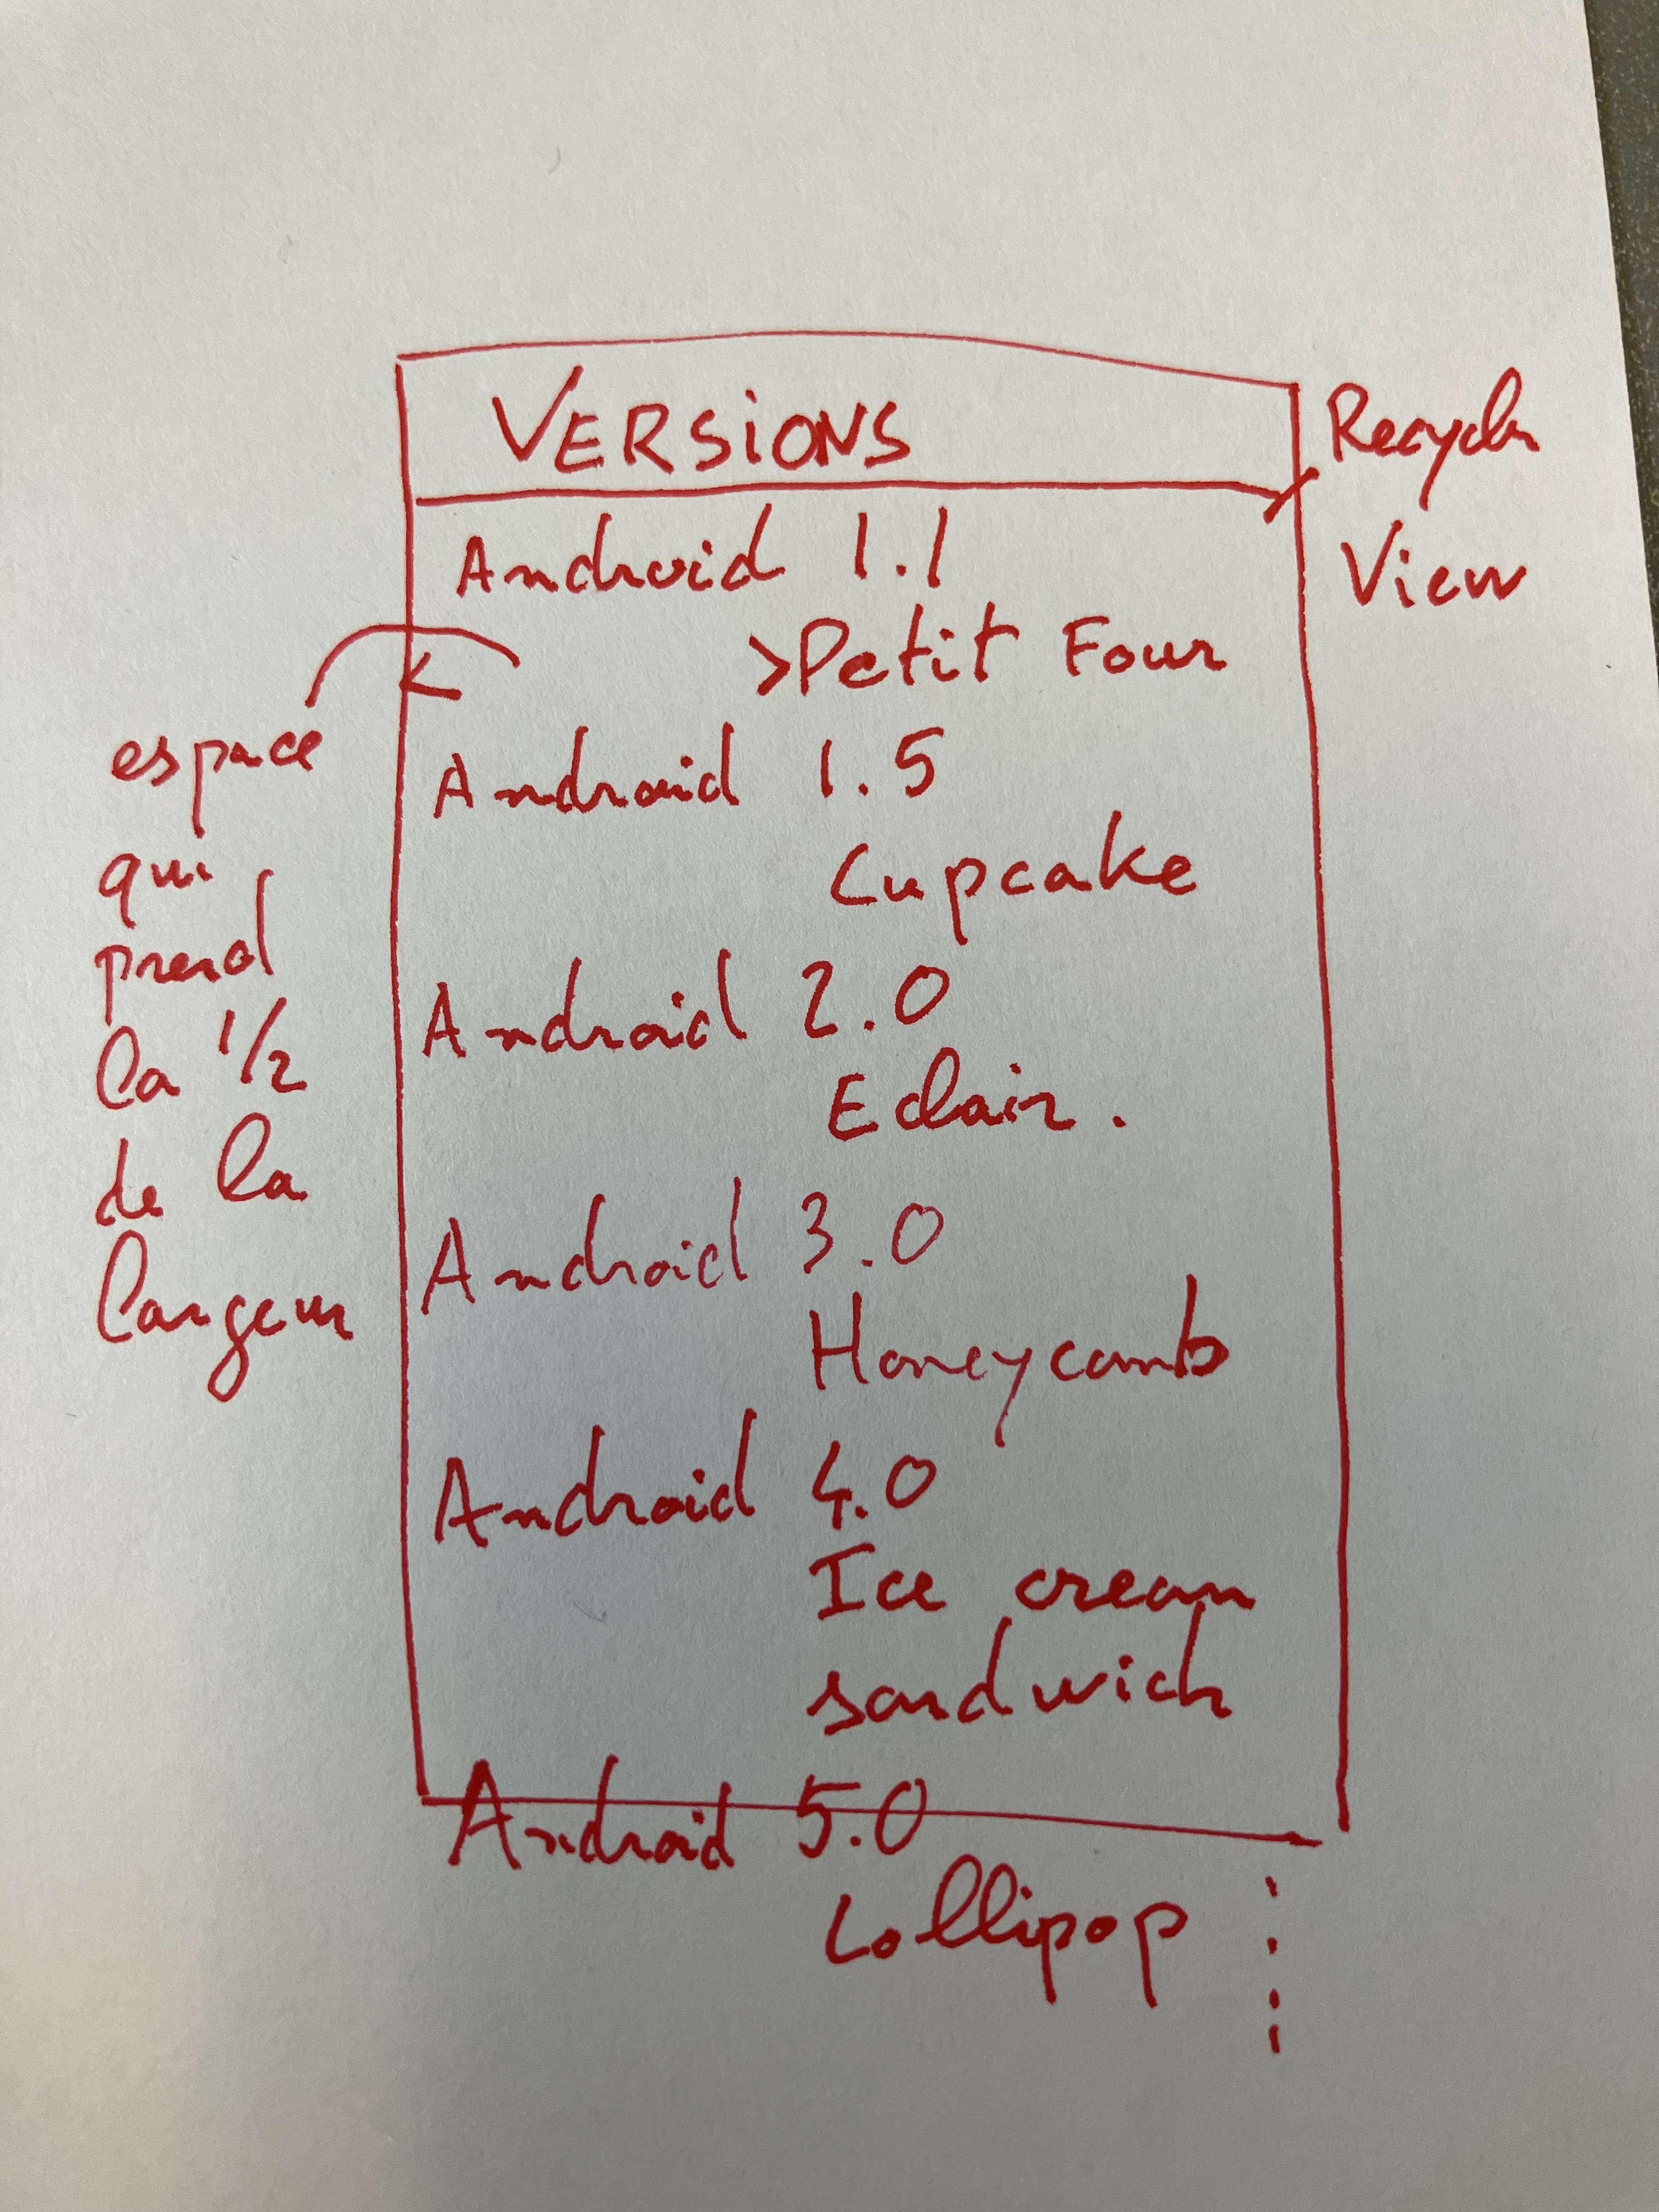 VERSiONS
Recycler
View
Android 1.1
>Petit Four
espace
qui
prend
la 1/2
de la
largeur
Android 1.5
Cupcake
Android 2.0
Eclair.
Android 3.0
Honeycomb
Android 4.0
Ice cream
sandwich
Android 5.0
Lollipop